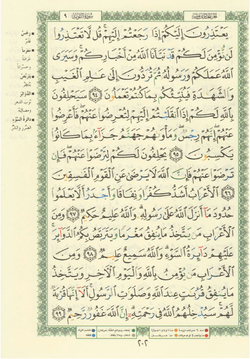 يَعْتَذِرُونَ إِلَيْكُمْ إِذَا رَجَعْتُمْ إِلَيْهِمْ قُل لَّا تَعْتَذِرُوا۟
لَن نُّؤْمِنَ لَكُمْ قَدْ نَبَّأَنَا ٱللَّهُ مِنْ أَخْبَارِكُمْ وَسَيَرَى
ٱللَّهُ عَمَلَكُمْ وَرَسُولُهُۥ ثُمَّ تُرَدُّونَ إِلَىٰ عَٰلِمِ ٱلْغَيْبِ
وَٱلشَّهَٰدَةِ فَيُنَبِّئُكُم بِمَا كُنتُمْ تَعْمَلُونَ ٩٤ سَيَحْلِفُونَ بِٱللَّهِ
لَكُمْ إِذَا ٱنقَلَبْتُمْ إِلَيْهِمْ لِتُعْرِضُوا۟ عَنْهُمْ فَأَعْرِضُوا۟
عَنْهُمْ إِنَّهُمْ رِجْسٌ وَمَأْوَىٰهُمْ جَهَنَّمُ جَزَآءًۢ بِمَا كَانُوا۟
يَكْسِبُونَ ٩٥ يَحْلِفُونَ لَكُمْ لِتَرْضَوْا۟ عَنْهُمْ فَإِن
تَرْضَوْا۟ عَنْهُمْ فَإِنَّ ٱللَّهَ لَا يَرْضَىٰ عَنِ ٱلْقَوْمِ ٱلْفَٰسِقِينَ
٩٦ ٱلْأَعْرَابُ أَشَدُّ كُفْرًا وَنِفَاقًا وَأَجْدَرُ أَلَّا يَعْلَمُوا۟
حُدُودَ مَآ أَنزَلَ ٱللَّهُ عَلَىٰ رَسُولِهِۦ وَٱللَّهُ عَلِيمٌ حَكِيمٌ ٩٧ وَمِنَ
ٱلْأَعْرَابِ مَن يَتَّخِذُ مَا يُنفِقُ مَغْرَمًا وَيَتَرَبَّصُ بِكُمُ ٱلدَّوَآئِرَ
عَلَيْهِمْ دَآئِرَةُ ٱلسَّوْءِ وَٱللَّهُ سَمِيعٌ عَلِيمٌ ٩٨ وَمِنَ
ٱلْأَعْرَابِ مَن يُؤْمِنُ بِٱللَّهِ وَٱلْيَوْمِ ٱلْءَاخِرِ وَيَتَّخِذُ
مَا يُنفِقُ قُرُبَٰتٍ عِندَ ٱللَّهِ وَصَلَوَٰتِ ٱلرَّسُولِ أَلَآ إِنَّهَا قُرْبَةٌ
لَّهُمْ سَيُدْخِلُهُمُ ٱللَّهُ فِى رَحْمَتِهِۦٓ إِنَّ ٱللَّهَ غَفُورٌ رَّحِيمٌ ٩٩
٢٠٢